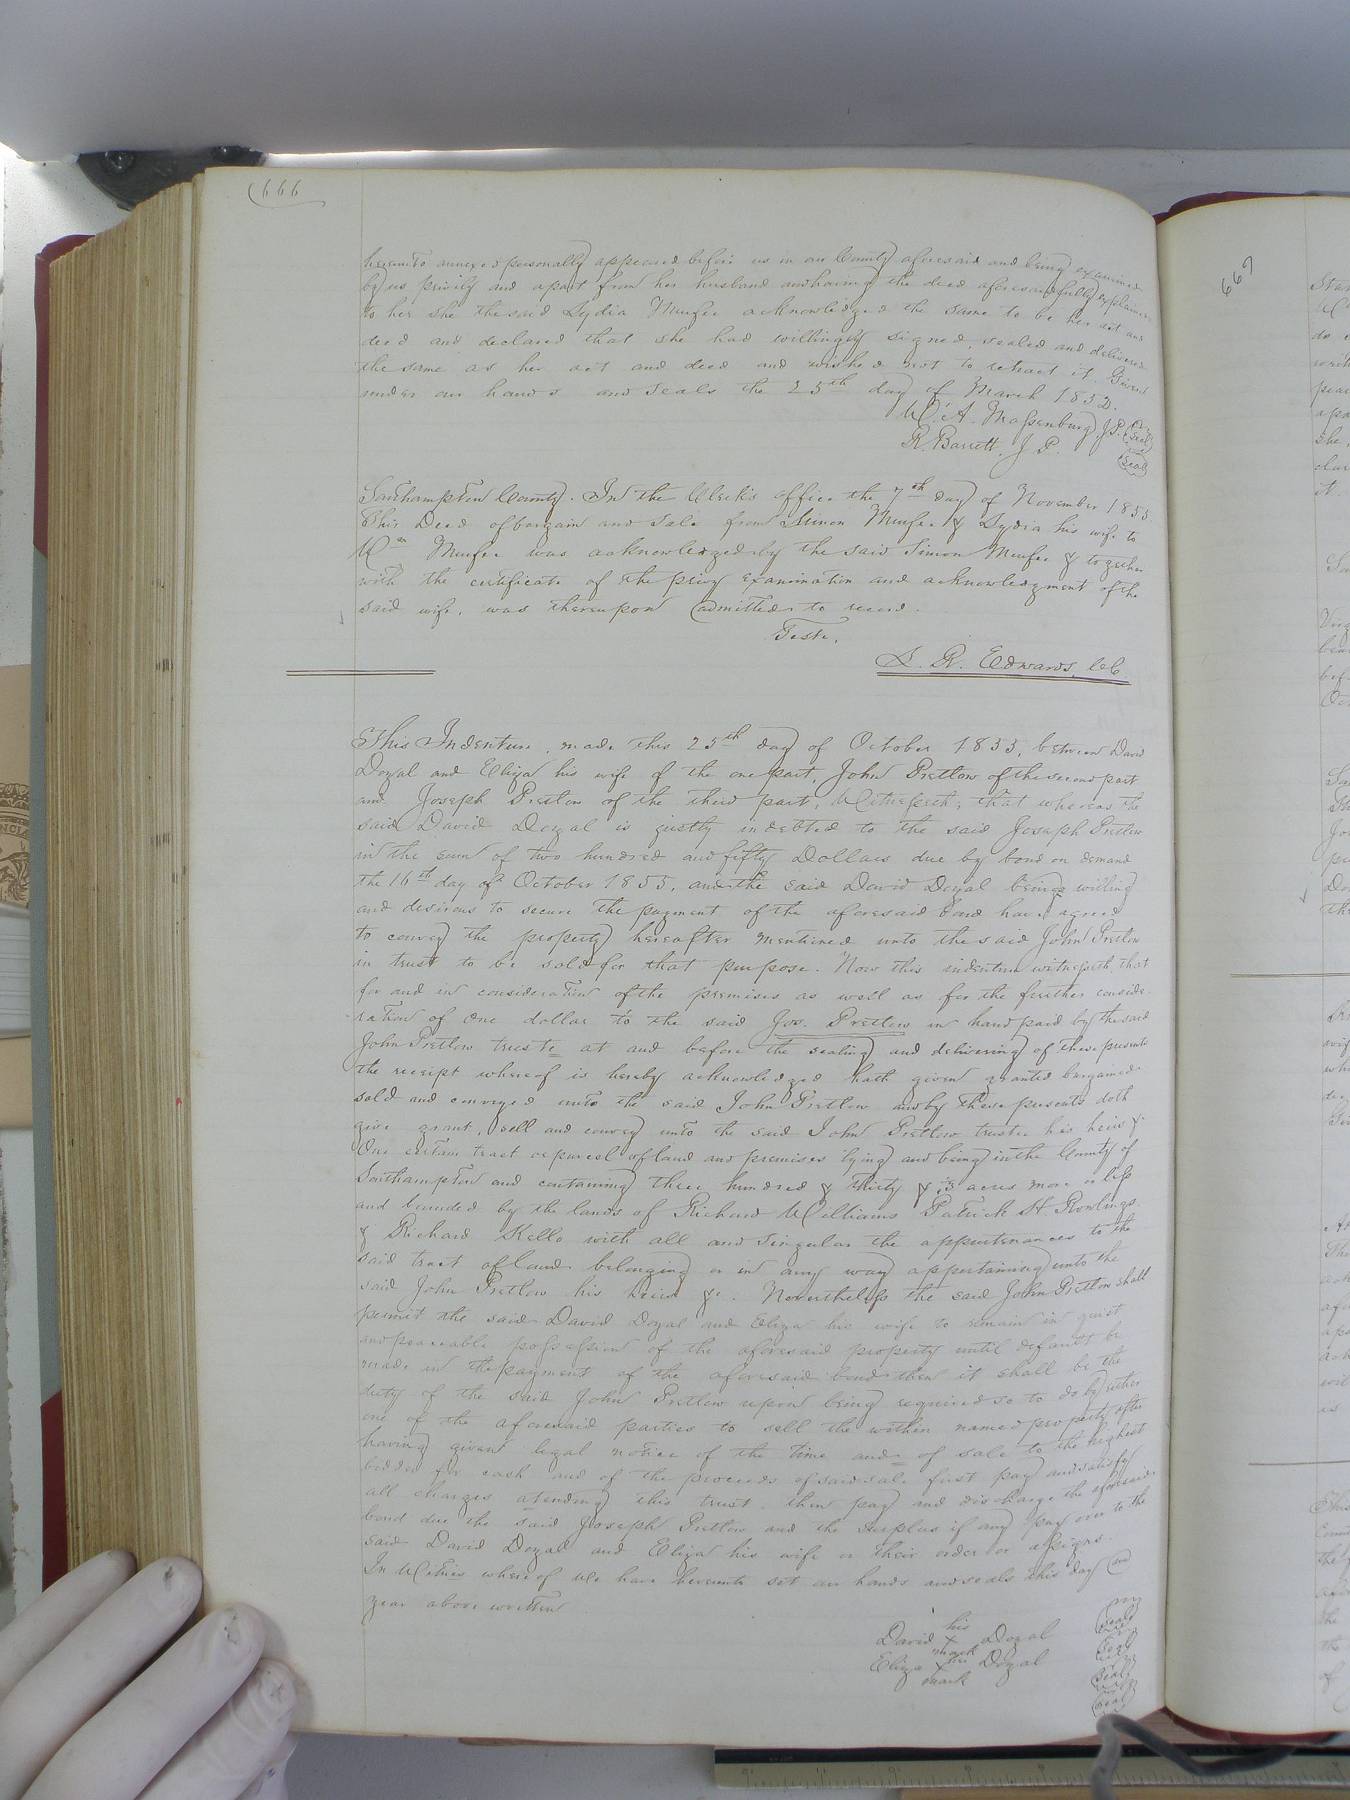 666
hereunto annexed personally appeared before us in our County aforesaid and being examined
by us privily and apart from her husband and having the deed aforesaid fully explained
to her she the said Lydia Murfee acknowledged the same to be her act and
deed and declared that she had willingly signed, sealed and delivered
the same as her act and deed and wished not to retract it. Given
under our hands and seals the 25th day of March 1853.
W. A. Massenburg J.P. Seal
R. Barrett. J P. Seal
Southampton County. In the Clerk's office the 7th day of November 1855
This Deed of bargain and sale from Simon Murfee & Lydia his wife to
Wm Murfee was acknowledged by the said Simon Murfee & together
with the certificate of the privy examination and acknowledgment of the
said wife, was thereupon admitted to record.
Teste,
L. R. Edwards, C.C.
This Indenture, made this 25th day of October 1855, between David
Doyal and Eliza his wife of the one part, John Pretlow of the second part
and Joseph Pretlow of the third part, Witnesseth; that whereas the
said David Doyal is justly indebted to the said Joseph Pretlow
in the sum of two hundred and fifty Dollars due by bond on demand
the 16th day of October 1855, and the said David Doyal being willing
and desirous to secure the payment of the aforesaid bond have agreed
to convey the property hereafter mentioned unto the said John Pretlow
in trust to be sold for that purpose. Now this indenture witnesseth, that
for and in consideration of the premises as well as for the further conside-
ration of one dollar to the said Jos. Pretlow in hand paid by the said
John Pretlow truste at and before the sealing and delivering of these presents
the receipt whereof is hereby acknowledged hath given granted bargained
sold and conveyed unto the said John Pretlow and by these presents doth
give grant, sell and convey unto the said John Pretlow trustee his heirs &c
One certain tract or parcel of land and premises lying and being in the County of
Southampton and containing three hundred & thirty & 3 acres more or less
and bounded by the lands of Richard Williams Patrick H. Rowlings.
& Richard Kello with all and singular the appurtenances to the
said tract of land belonging or in any way appertaining unto the
said John Pretlow his heirs &c. Nevertheless the said John Pretlow shall
permit the said David Doyal and Eliza his wife to remain in quiet
and peaceable possession of the aforesaid property until default be
made in the payment of the aforesaid bond then it shall be the
duty of the said John Pretlow upon being required so to do by either
one of the aforesaid parties to sell the within named property after
having given legal notice of the time and of sale to the highest
bidder for cash and of the proceeds of said sale first pay and satisfy
all charges atending this trust. then pay and discharge the aforesaid
bond due the said Joseph Pretlow and the surplus if any pay over to the
said David Doyal and Eliza his wife or their order or assigns.
In Witness whereof We have hereunto set our hands and seals this day and
year above written
his
David X Doyal Seal
mark
Eliza X Doyal Seal
mark
Seal
Seal
667